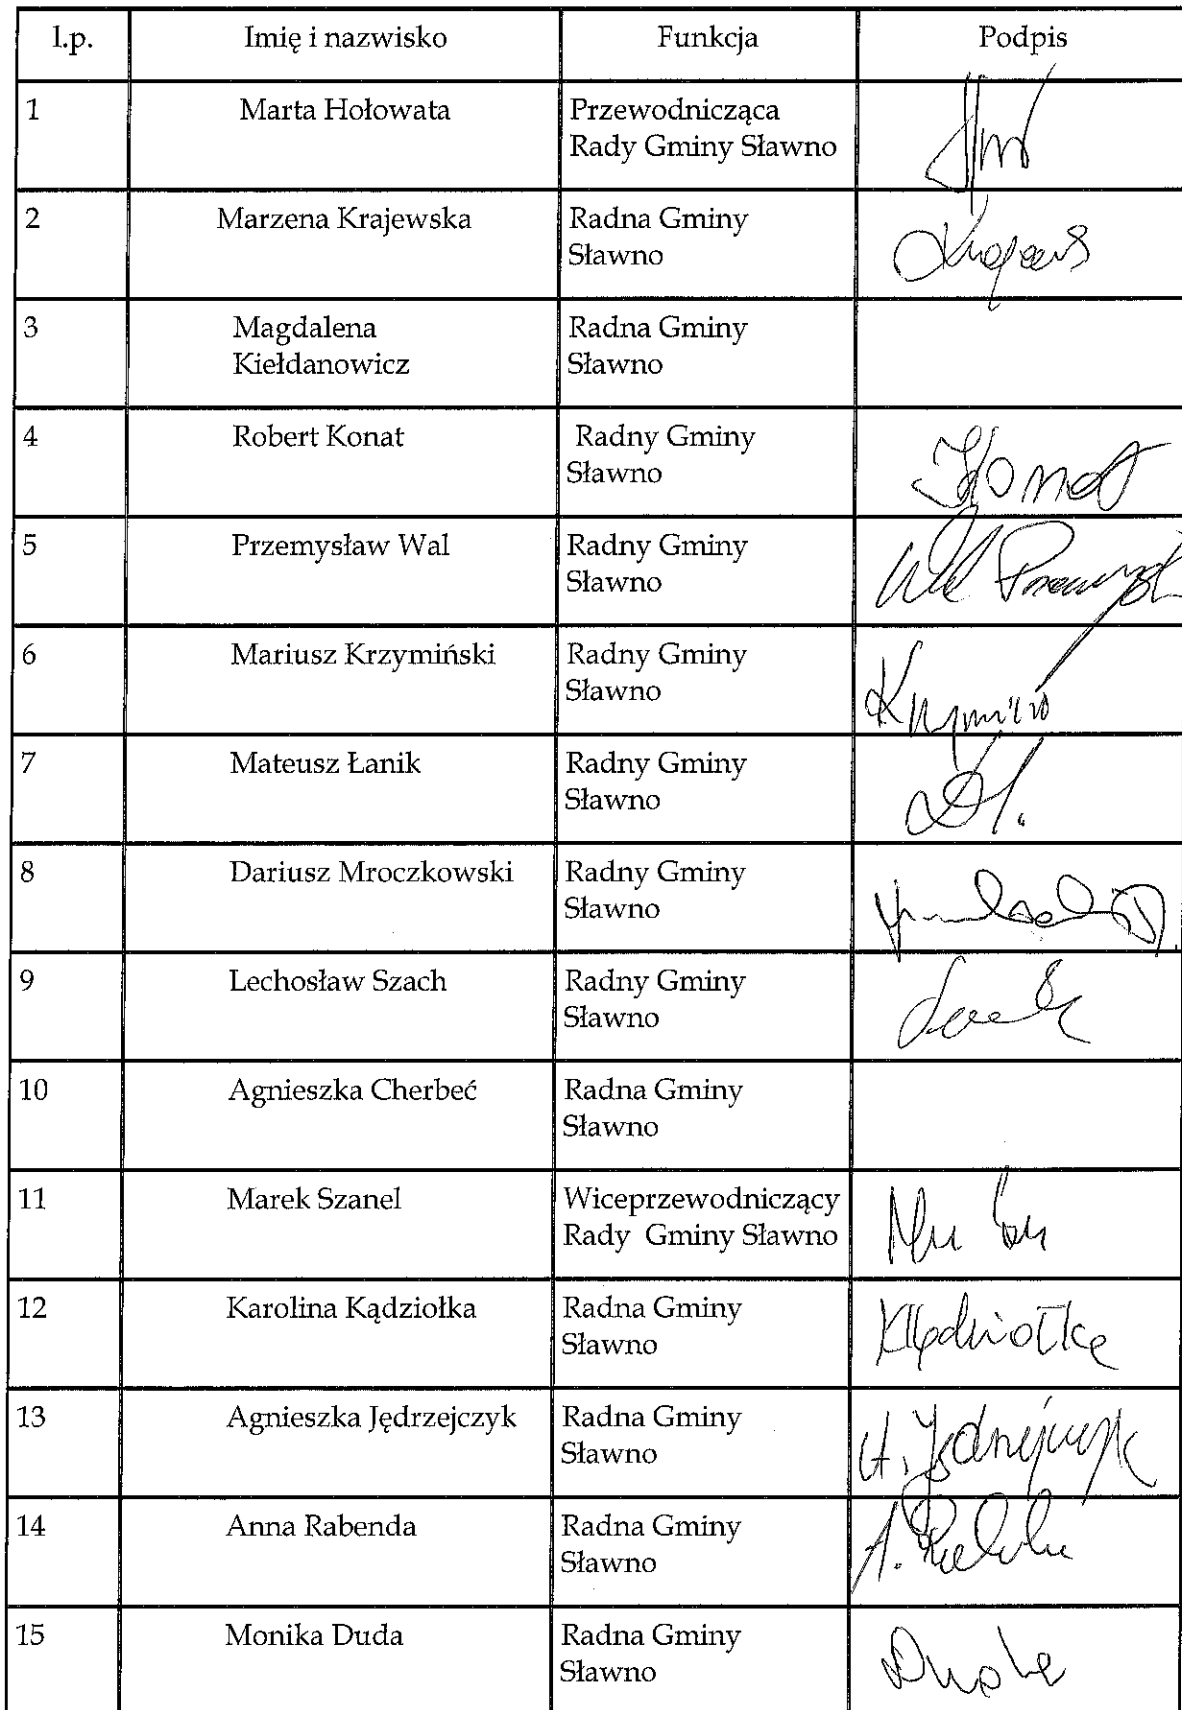 I.p. Imię i nazwisko Funkcja Podpis
1 Marta Hołowata Przewodnicząca
Rady Gminy Sławno
2 Marzena Krajewska Radna Gminy
Sławno
3 Magdalena Radna Gminy
Kiełdanowicz Sławno
4 Robert Konat Radny Gminy
Sławno Konat
5 Przemysław Wal Radny Gminy
Sławno Wal
6 Mariusz Krzymiński Radny Gminy
Sławno
7 Mateusz Łanik Radny Gminy
Sławno
8 Dariusz Mroczkowski Radny Gminy
Sławno
9 Lechosław Szach Radny Gminy
Sławno
10 Agnieszka Cherbeć Radna Gminy
Sławno
11 Marek Szanel Wiceprzewodniczący
Rady Gminy Sławno
12 Karolina Kądziołka Radna Gminy
Sławno KKądziołka
13 Agnieszka Jędrzejczyk Radna Gminy
Sławno A. Jędrzejczyk
14 Anna Rabenda Radna Gminy
Sławno
15 Monika Duda Radna Gminy
Sławno Duda